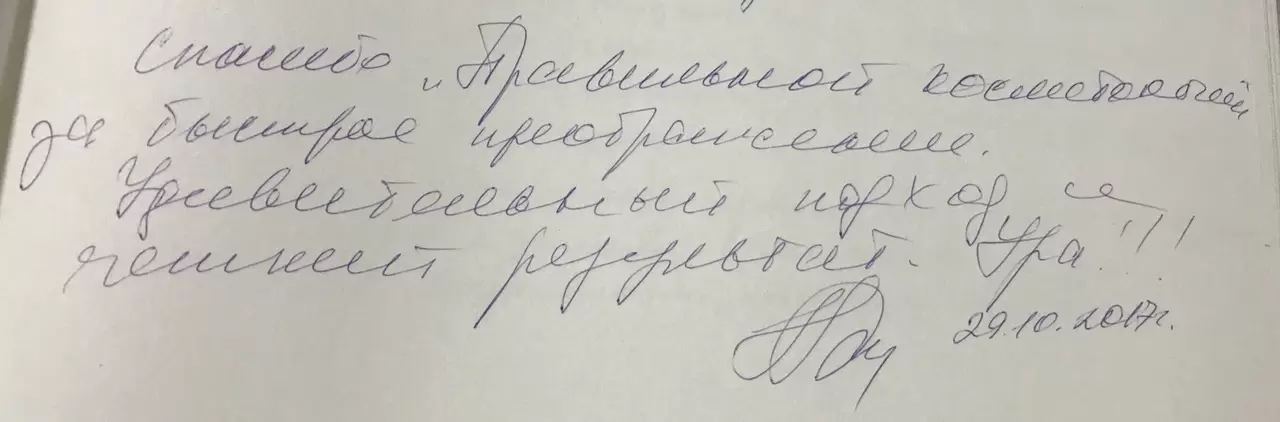 Спасибо „Правильной косметологии
за быстрое преображение.
Удивительный подход и
результат. Ура!!!
29.10.2017г.